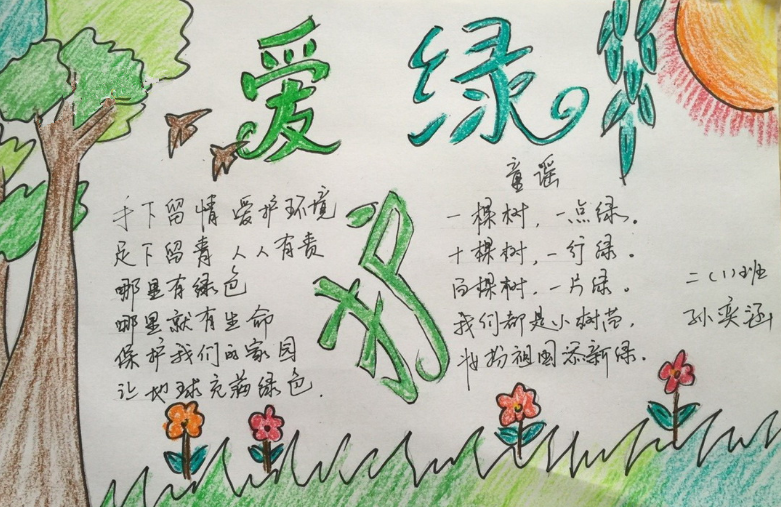 爱绿
护
手下留情 爱护环境
足下留青 人人有责
哪里有绿色
哪里就有生命
保护我们的家园
让地球充满绿色.
童谣
一棵树，一点绿。
十棵树，一行绿。
百棵树，一片绿。
我们都是小树苗，
妆扮祖国添新绿。
二(1)班
孙奕涵